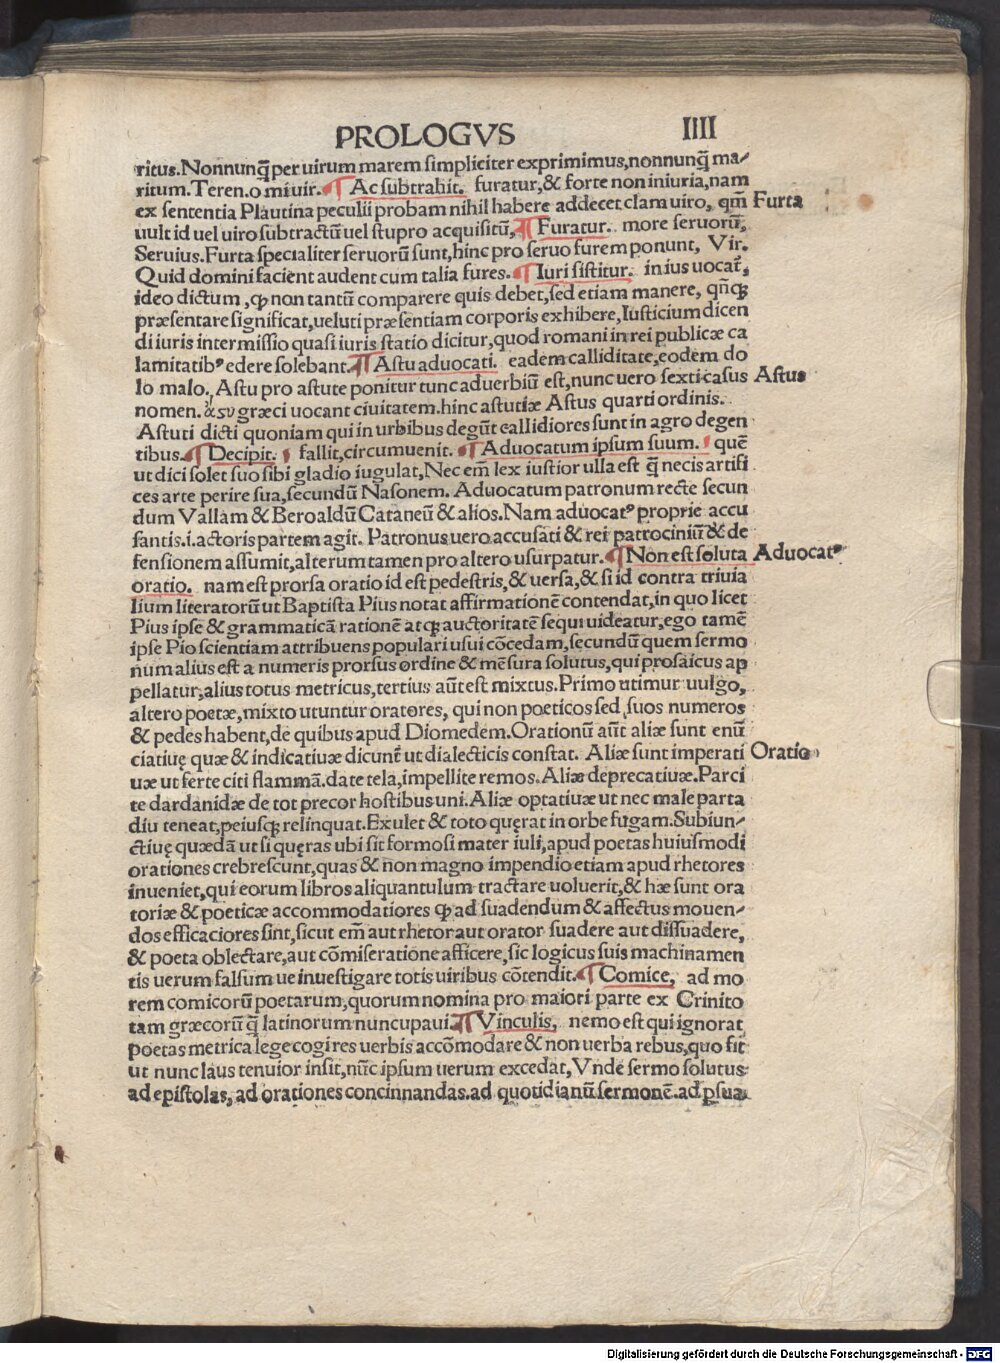 PROLOGVS IIII
ritus.Nonnunq̃ per uirum marem simpliciter exprimimus,nonnunq̃ ma⸗
ritum.Teren.o mi uir.¶ Ac subtrahit. furatur,& forte non iniuria,nam
ex sententia Plautina peculii probam nihil habere addecet clam uiro, qm̃ Furta
uult id uel uiro subtractũ uel stupro acquisitũ,¶ Furatur. more seruorũ,
Seruius.Furta specialiter seruorũ sunt,hinc pro seruo furem ponunt, Vir.
Quid domini facient audent cum talia fures.¶ Iuri sistitur. in ius uocat̃,
ideo dictum ,ꝙ non tantũ comparere quis debet,sed etiam manere, qñꝗꝫ
præsentare significat,ueluti præsentiam corporis exhibere,Iusticium dicen
di iuris intermissio quasi iuris statio dicitur,quod romani in rei publicæ ca
lamitatibꝰ edere solebant.¶ Astu aduocati. eadem calliditate,eodem do
lo malo., Astu pro astute ponitur tunc aduerbiũ est,nunc uero sexti casus Astus
nomen.ἄςυ græci uocant ciuitatem.hinc astutiæ Astus quarti ordinis.
Astuti dicti quoniam qui in urbibus degũt callidiores sunt in agro degen
tibus.¶ Decipit. fallit,circumuenit.¶ Aduocatum ipsum suum. quẽ
ut dici solet suo sibi gladio iugulat,Nec em̃ lex iustior ulla est q̃ necis artifi
ces arte perire sua,secundũ Nasonem. Aduocatum patronum recte secun
dum Vallam & Beroaldũ Cataneũ & alios.Nam aduocatꝰ proprie accu
santis.i.actoris partem agit. Patronus uero accusati & rei patrociniũ & de
fensionem assumit,alterum tamen pro altero usurpatur.¶ Non est soluta Aduocatꝰ
oratio. nam est prorsa oratio id est pedestris,& uersa,& si id contra triuia
lium literatorũ ut Baptista Pius notat affirmationẽ contendat,in quo licet
Pius ipse & grammaticã rationẽ atꝗꝫ auctoritatẽ sequi uideatur,ego tamẽ
ipse Pio scientiam attribuens populari usui cõcedam,secundũ quem sermo
num alius est a numeris prorsus ordine & mẽsura solutus,qui prosaicus ap
pellatur,alius totus metricus,tertius aũt est mixtus.Primo utimur uulgo,
altero poetæ,mixto utuntur oratores, qui non poeticos sed suos numeros
& pedes habent,de quibus apud Diomedem.Orationũ aũt aliæ sunt enũ
ciatiuę quæ & indicatiuæ dicunt̃ ut dialecticis constat. Aliæ sunt imperati Oratio
uæ ut ferte citi flammã.date tela,impellite remos.Aliæ deprecatiuæ.Parci
te dardanidæ de tot precor hostibus uni.Aliæ optatiuæ ut nec male parta
diu teneat,peiusꝗꝫ relinquat.Exulet & toto quęrat in orbe fugam.Subiun⸗
ctiuę quædã ut si quęras ubi sit formosi mater iuli,apud poetas huiusmodi
orationes crebrescunt,quas & non magno impendio etiam apud rhetores
inueniet,qui eorum libros aliquantulum tractare uoluerit,& hæ sunt ora
toriæ & poeticæ accommodatiores ꝙ ad suadendum & affectus mouen⸗
dos efficaciores sint,sicut em̃ aut rhetor aut orator suadere aut dissuadere,
& poeta oblectare,aut cõmiseratione afficere,sic logicus suis machinamen
tis uerum falsum ue inuestigare totis uiribus cõtendit.¶ Comice, ad mo
rem comicorũ poetarum,quorum nomina pro maiori parte ex Crinito
tam græcorũ q̃ latinorum nuncupaui.¶ Vinculis, nemo est qui ignorat
poetas metrica lege cogi res uerbis accõmodare & non uerba rebus,quo fit
ut nunc laus tenuior insit,nũc ipsum uerum excedat,Vnde sermo solutus
ad epistolas,ad orationes concinnandas.ad quotidianũ sermonẽ.ad ꝑsua
Digitalisierung gefördert durch die Deutsche Forschungsgemeinschaft - DFG